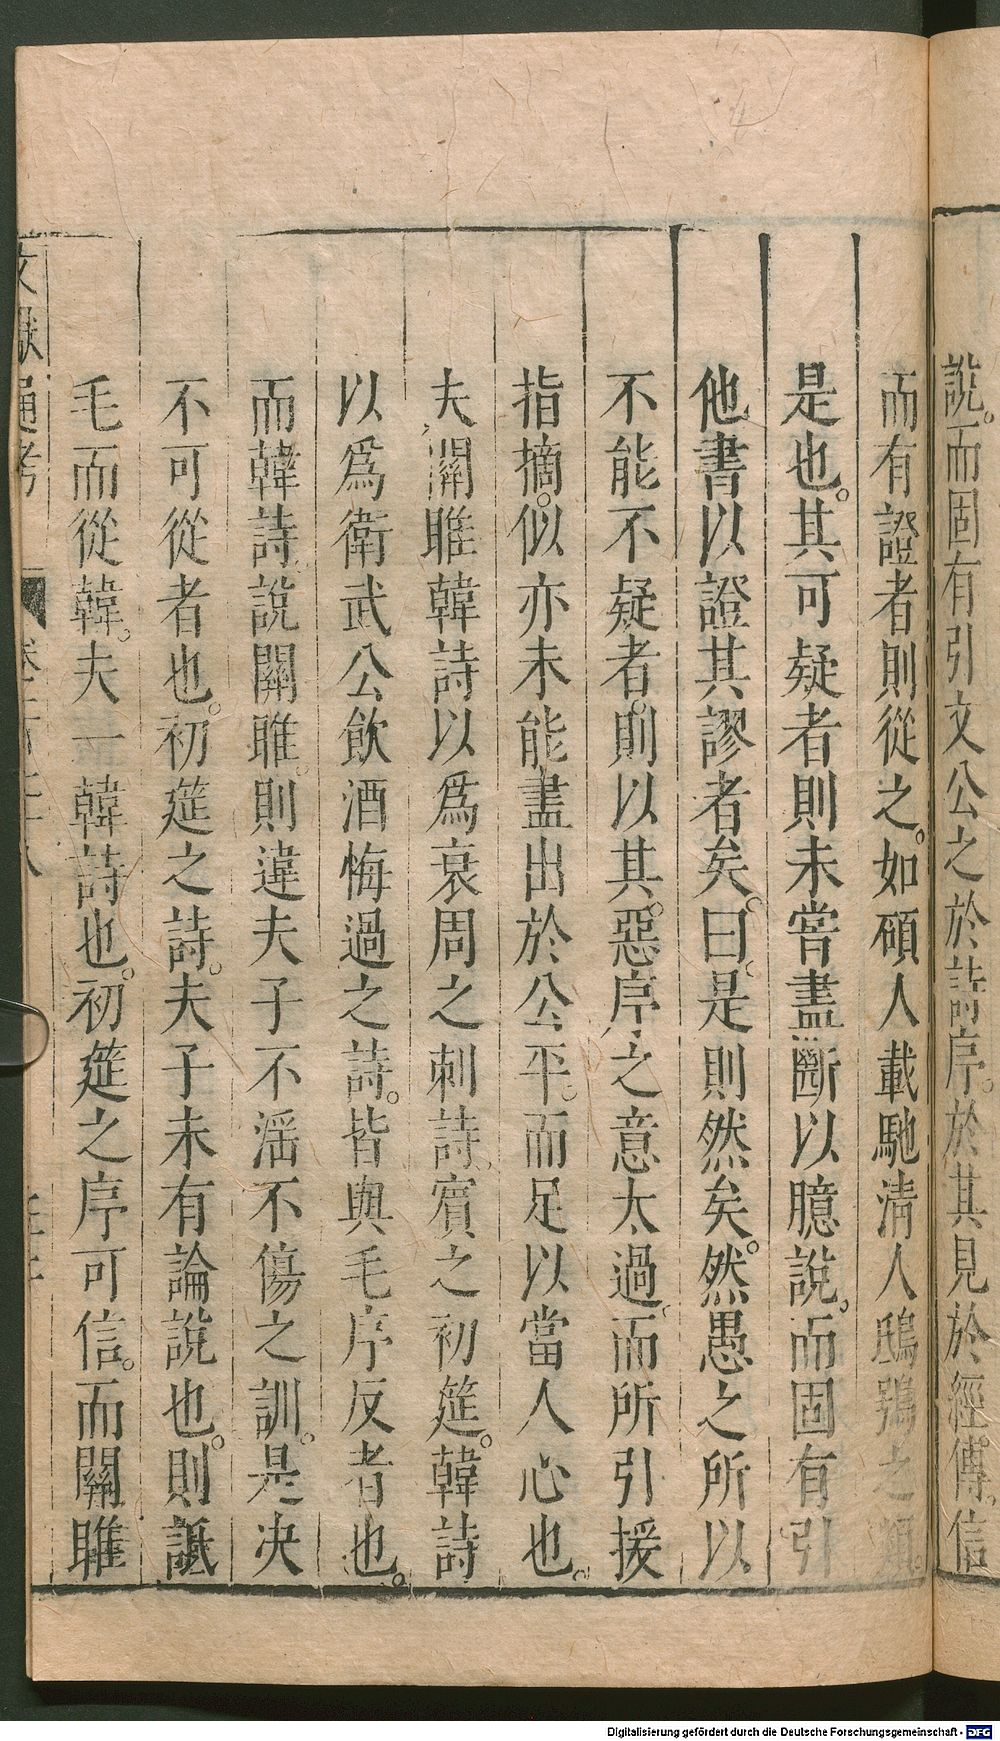 說。而固有引文公之於詩序。於其見於經傳。信
而有證者則從之。如碩人載馳清人鴟鴞之類。
是也。其可疑者則未嘗盡斷以臆說。而固有引
他書以證其謬者矣。曰。是則然矣。然愚之所以
不能不疑者。則以其。惡序之意太過。而所引援
指摘。似亦未能盡出於公平。而足以當人心也。
夫關雎韓詩以為衰周之刺詩。賓之初筵。韓詩
以為衛武公飲酒悔過之詩。皆與毛序反者也。
而韓詩說關雎。則違夫子不滛不傷之訓。是决
不可從者也。初筵之詩。夫子未有論說也。則詆
毛而從韓。夫一韓詩也。初筵之序可信。而關雎
文獻通考
Digitalisierung gefördert durch die Deutsche Forschungsgemeinschaft - DFG